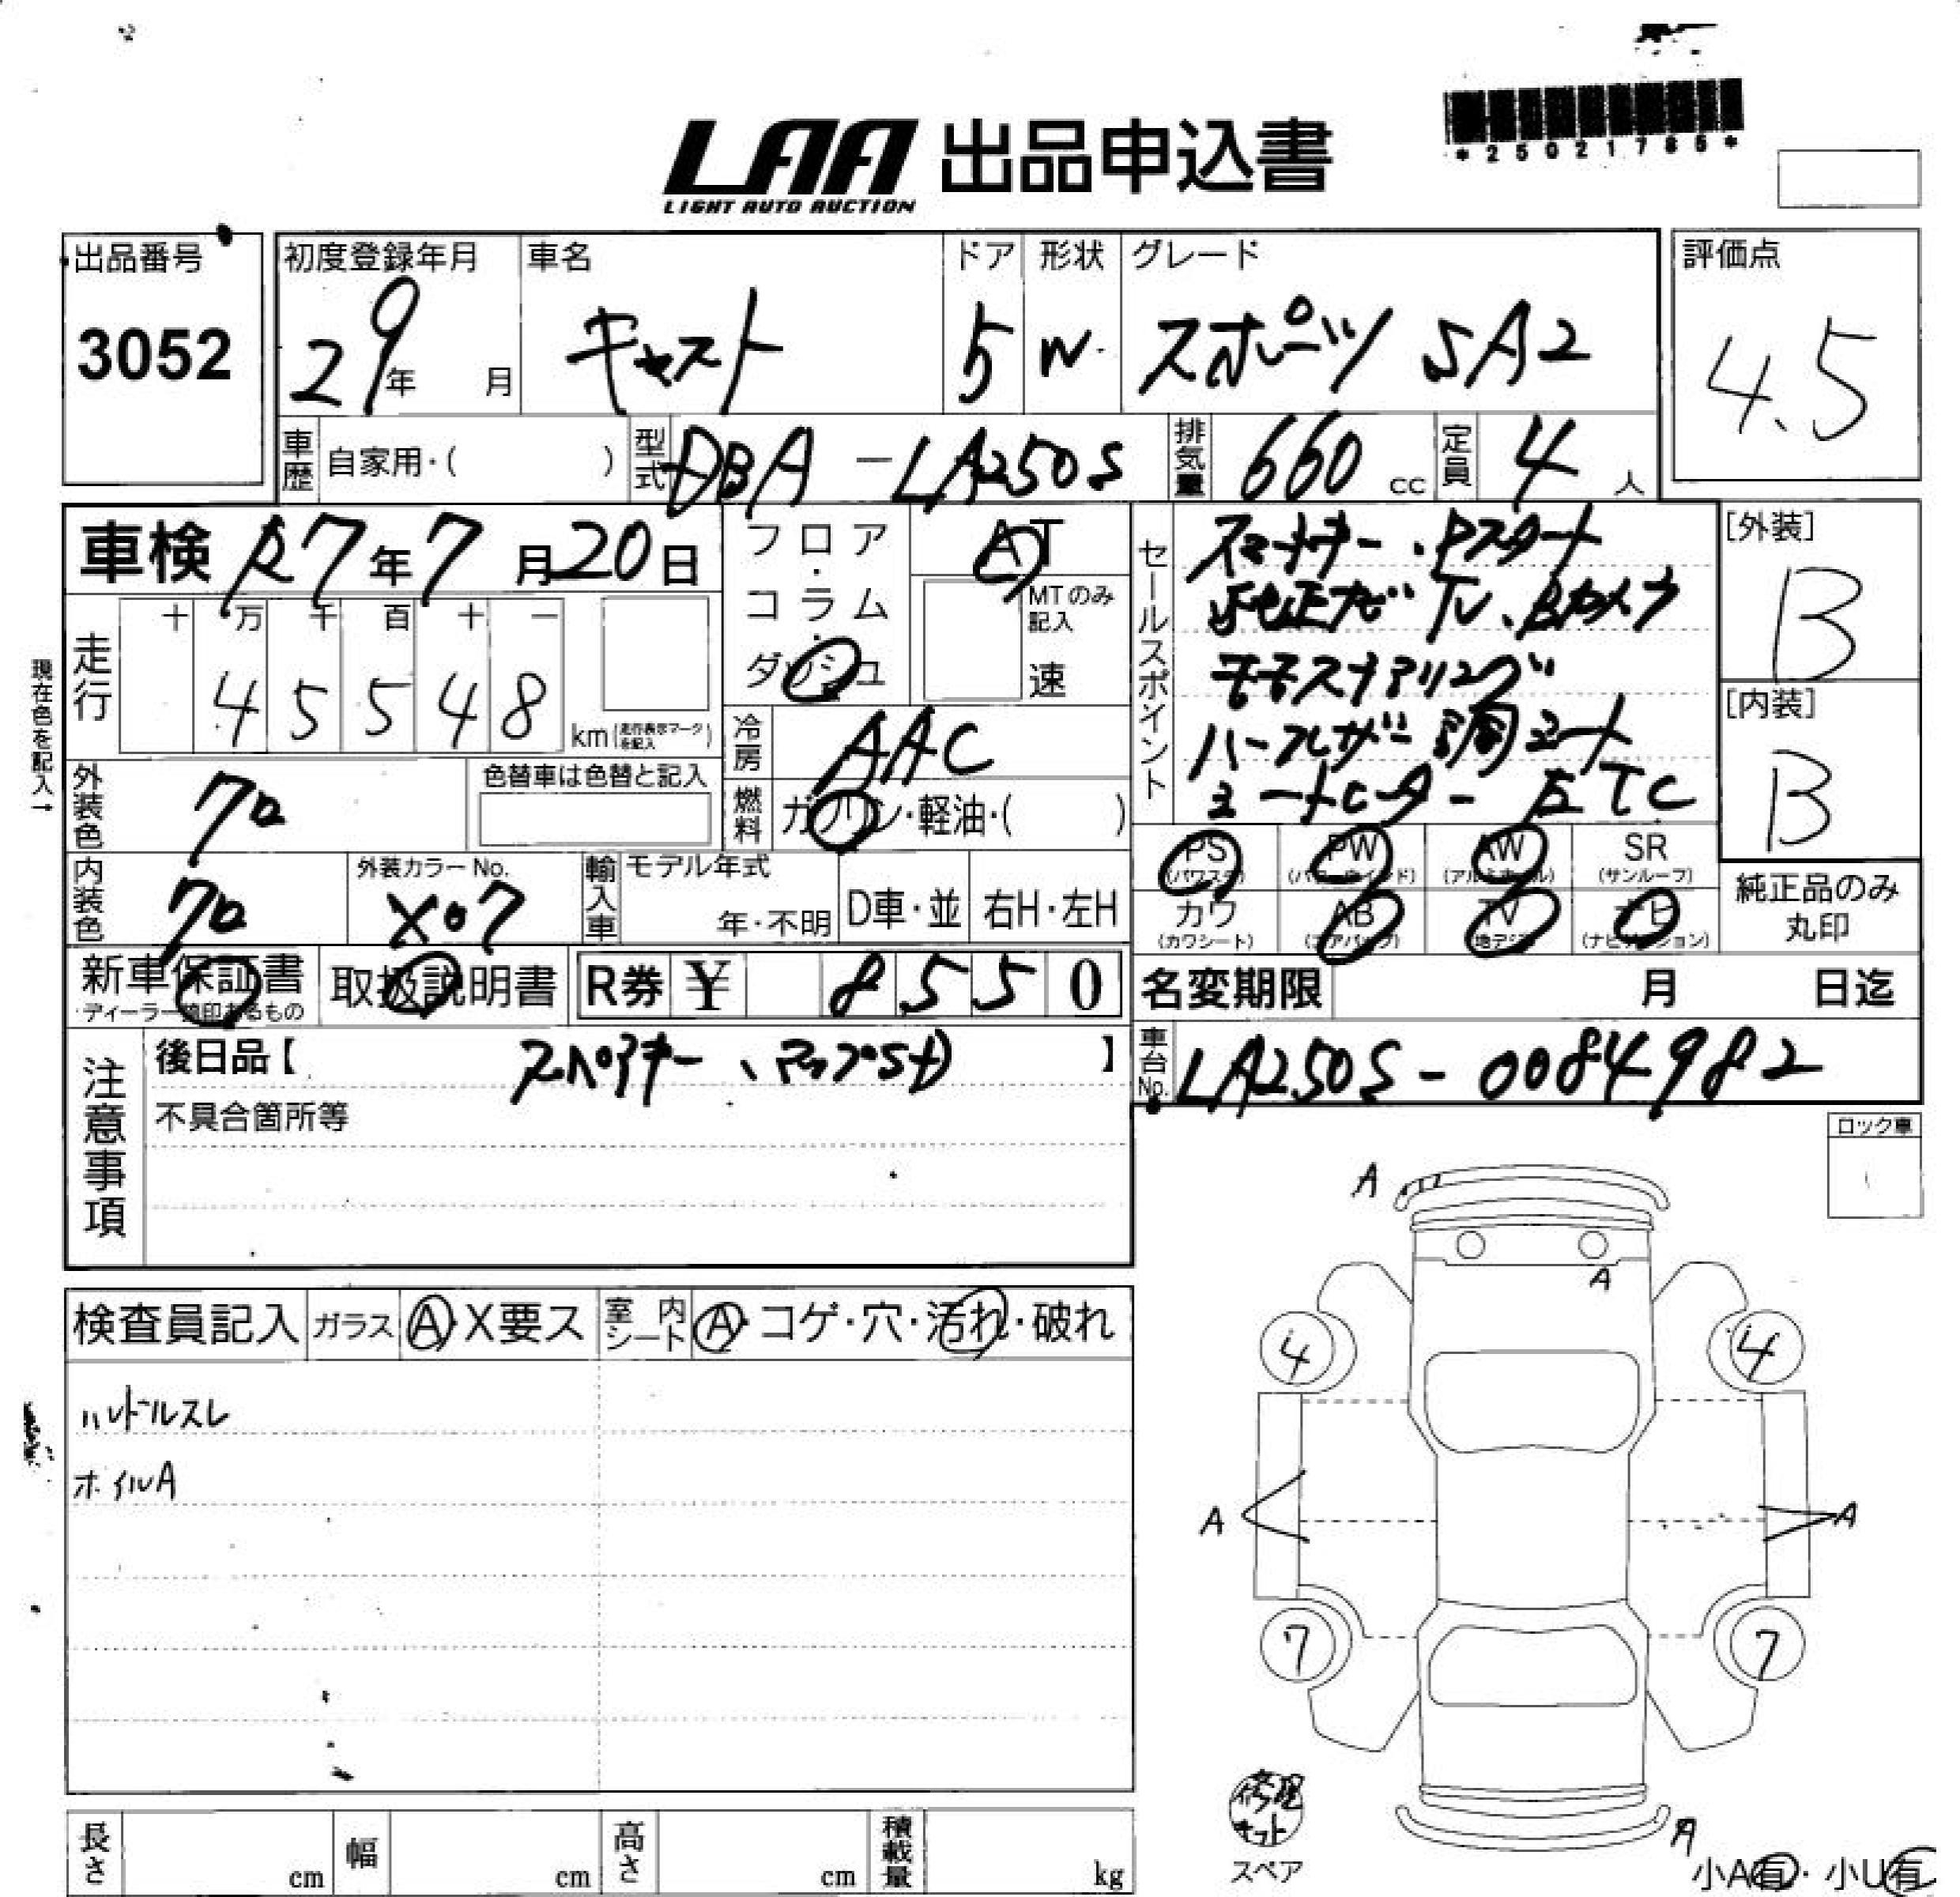 LAA 出品申込書
LIGHT AUTO AUCTION
*25021785*
出品番号
3052
初度登録年月
29年 月
車名
キャスト
ドア
5
形状
W
グレード
スポーツ SA2
評価点
4.5
車歴 自家用・( )
型式 DBA-LA250S
排気量 660 cc
定員 4 人
車検 R7年7月20日
フロア・コラム・ダッシュ
AT
MTのみ記入
速
セールスポイント
スマートキー・Pスタート
純正ナビ TV、Bカメラ
モモステアリング
ハーフレザー調シート
シートヒーター ETC
[外装]
B
[内装]
B
現在色を記入→
走行
十 万 千 百 十 一
4 5 5 4 8
km(走行表示マークを記入)
冷房 AAC
外装色 クロ
色替車は色替と記入
燃料 ガソリン・軽油・( )
PS (パワステ)
PW (パワーウインド)
AW (アルミホイル)
SR (サンルーフ)
カワ (カワシート)
AB (エアバック)
TV (地デジ)
ナビ (ナビゲーション)
純正品のみ丸印
内装色 クロ
外装カラーNo.
X07
輸入車
モデル年式
年・不明
D車・並
右H・左H
新車保証書
ディーラー捺印あるもの
取扱説明書
R券 ¥ 8550
名変期限 月 日迄
注意事項
後日品【 スペアキー、マップSD 】
車台No. LA250S-0084982
不具合箇所等
ロック車
検査員記入
ガラス A・X要ス
室内シート A・コゲ・穴・汚れ・破れ
ハンドルスレ
ホイルA
A
A
4 4
A A
7 7
修理キット
スペア
A
小A有・小U有
長さ cm
幅 cm
高さ cm
積載量 kg